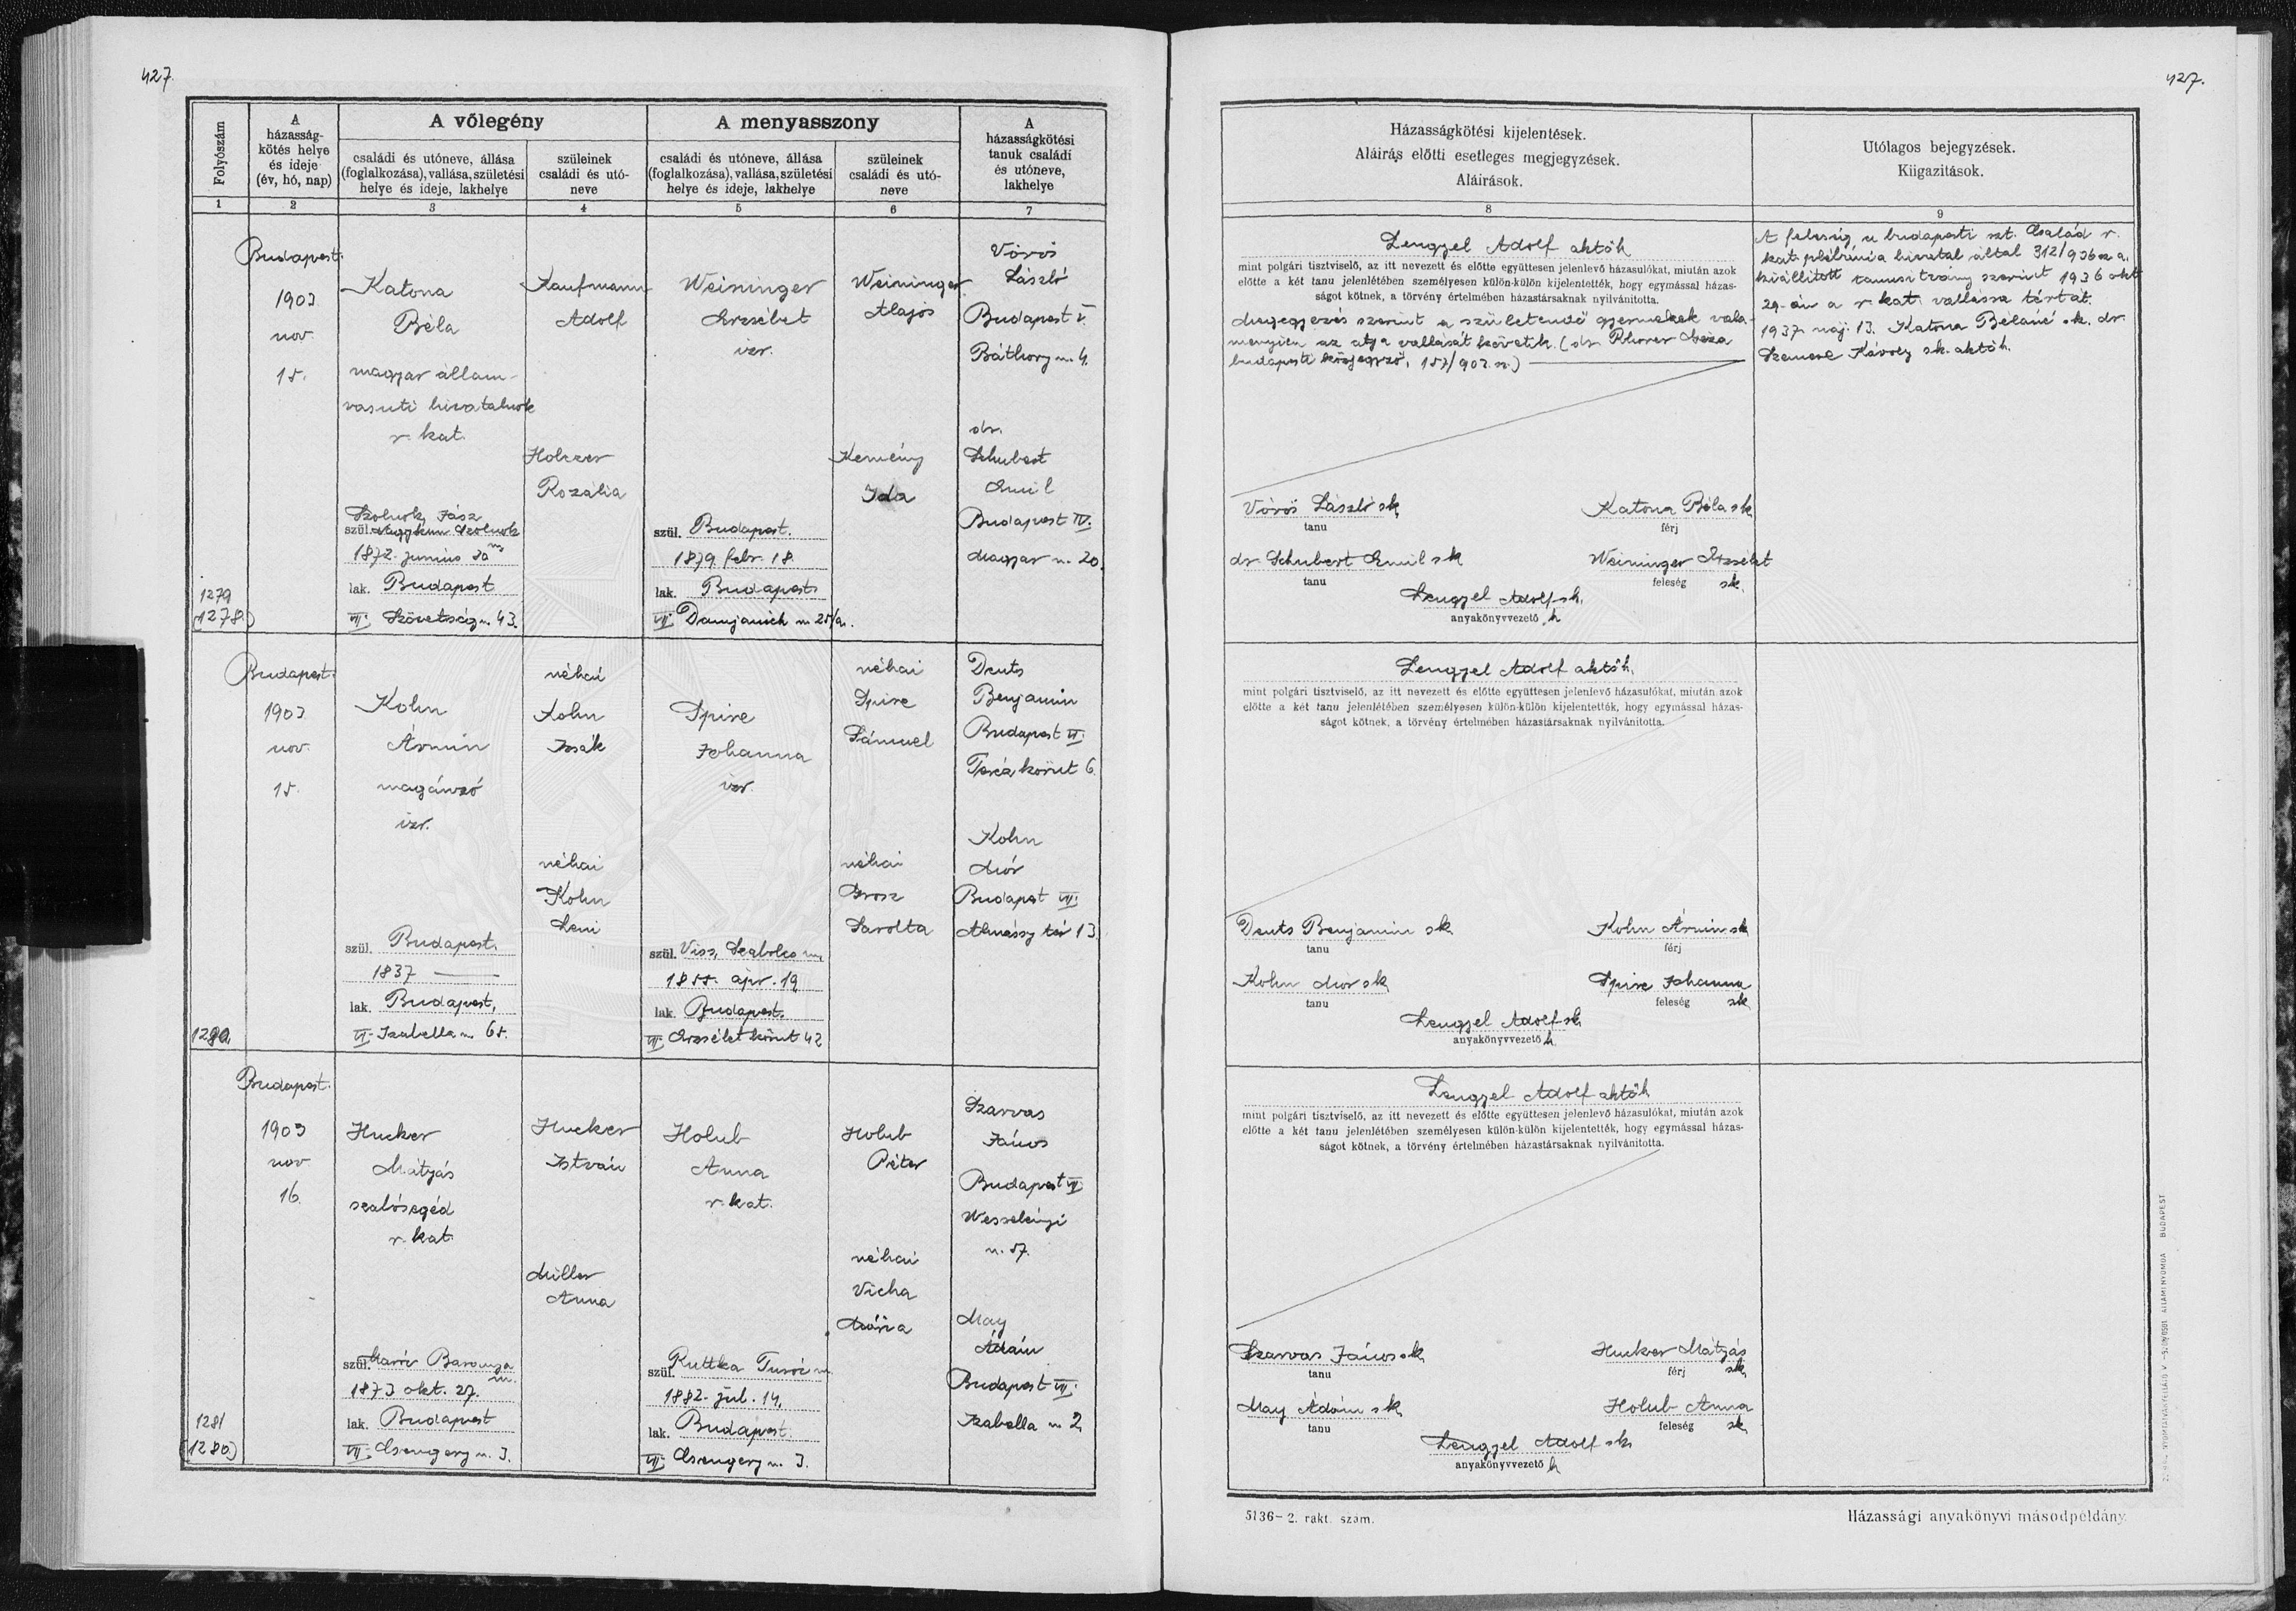 427.
427.
Folyószám
A házasság-
kötés helye
és ideje
(év, hó, nap)
A vőlegény
családi és utóneve, állása
(foglalkozása), vallása, születési
helye és ideje, lakhelye
szüleinek
családi és utó-
neve
A menyasszony
családi és utóneve, állása
(foglalkozása), vallása, születési
helye és ideje, lakhelye
szüleinek
családi és utó-
neve
A
házasságkötési
tanuk családi
és utóneve,
lakhelye
1 2 3 4 5 6 7
1279
(1278.)
Budapest.
1903
nov.
15.
Katona
Béla
magyar állam-
vasuti hivatalnok
r. kat.
Szolnok, Jász
szül. Nagykun Szolnok
1872. junius 20 m
lak. Budapest
VII. Szövetség u. 43.
Kaufmann
Adolf
Holczer
Rozália
Weininger
Erzsébet
izr.
szül. Budapest.
1879. febr. 18.
lak. Budapest
VII. Damjanich u. 25/a.
Weininger
Alajos
Kemény
Ida
Vörös
László
Budapest V.
Báthory u. 4.
dr.
Schubert
Emil
Budapest IV.
Magyar u. 20.
1280
Budapest.
1903
nov.
15.
Kohn
Ármin
magánzó
izr.
szül. Budapest.
1837
lak. Budapest,
VI. Izabella u. 65.
néhai
Kohn
Izsák
néhai
Kohn
Leni
Spire
Johanna
izr.
szül. Viss, Szabolcs m.
1855. ápr. 19.
lak. Budapest.
VII. Erzsébet körut 42
néhai
Spire
Sámuel
néhai
Grosz
Sarolta
Deuts
Benjamin
Budapest VI.
Teréz körut 6.
Kohn
Mór
Budapest VII.
Almássy tér 13.
1281
(1280.)
Budapest.
1903
nov
16.
Hucker
Mátyás
szabósegéd
r. kat.
szül. Baranya
m.
1873 okt. 27.
lak. Budapest
VII. Csengery u. 3.
Hucker
István
Müller
Anna
Holub
Anna
r. kat.
szül. Ruttka Turóc m.
1882. jul. 14.
lak. Budapest.
VII. Csengery u. 3.
Holub
Péter
néhai
Vicha
Mária
Szarvas
János
Budapest VII.
Wesselényi
u. 57.
May
Ádám
Budapest VII.
Izabella u. 2.
Házasságkötési kijelentések.
Aláirás előtti esetleges megjegyzések.
Aláirások.
Utólagos bejegyzések.
Kiigazitások.
8 9
Lengyel Adolf aktóh
mint polgári tisztviselő, az itt nevezett és előtte együttesen jelenlevő házasulókat, miután azok
előtte a két tanu jelenlétében személyesen külön-külön kijelentették, hogy egymással házas-
ságot kötnek, a törvény értelmében házastársaknak nyilvánitotta.
Megegyezés szerint a születendő gyermekek vala-
mennyien az atya vallását követik. (dr. Géza
budapesti közjegyző, 157/903. sz.)
Vörös László sk.
tanu
Katona Béla sk.
férj
dr. Schubert Emil sk
tanu
Weininger Erzsébet
feleség sk.
Lengyel Adolf sk.
anyakönyvvezető h
A feleség a budapesti szt. Család r.
kat. plébánia hivatal által 312/936 sz. a.
kiállitott tanusitvány szerint 1936 okt
29-én a r. kat. vallásra tért át.
1937 máj. 13. Katona Béláné sk. dr.
Szemere Károly sk. aktóh.
Lengyel Adolf aktóh.
mint polgári tisztviselő, az itt nevezett és előtte együttesen jelenlevő házasulókat, miután azok
előtte a két tanu jelenlétében személyesen külön-külön kijelentették, hogy egymással házas-
ságot kötnek, a törvény értelmében házastársaknak nyilvánitotta.
Deuts Benjamin sk.
tanu
Kohn Ármin sk
férj
Kohn Mór sk.
tanu
Spire Johanna
feleség sk
Lengyel Adolf sk.
anyakönyvvezető h.
Lengyel Adolf aktóh
mint polgári tisztviselő, az itt nevezett és előtte együttesen jelenlevő házasulókat, miután azok
előtte a két tanu jelenlétében személyesen külön-külön kijelentették, hogy egymással házas-
ságot kötnek, a törvény értelmében házastársaknak nyilvánitotta.
Szarvas János sk.
tanu
Hucker Mátyás
férj sk.
May Ádám sk.
tanu
Holub Anna
feleség sk.
Lengyel Adolf sk.
anyakönyvvezető h
5136-2. rakt. szám.
Házassági anyakönyvi másodpéldány.
ÁLLAMI NYOMDA BUDAPEST